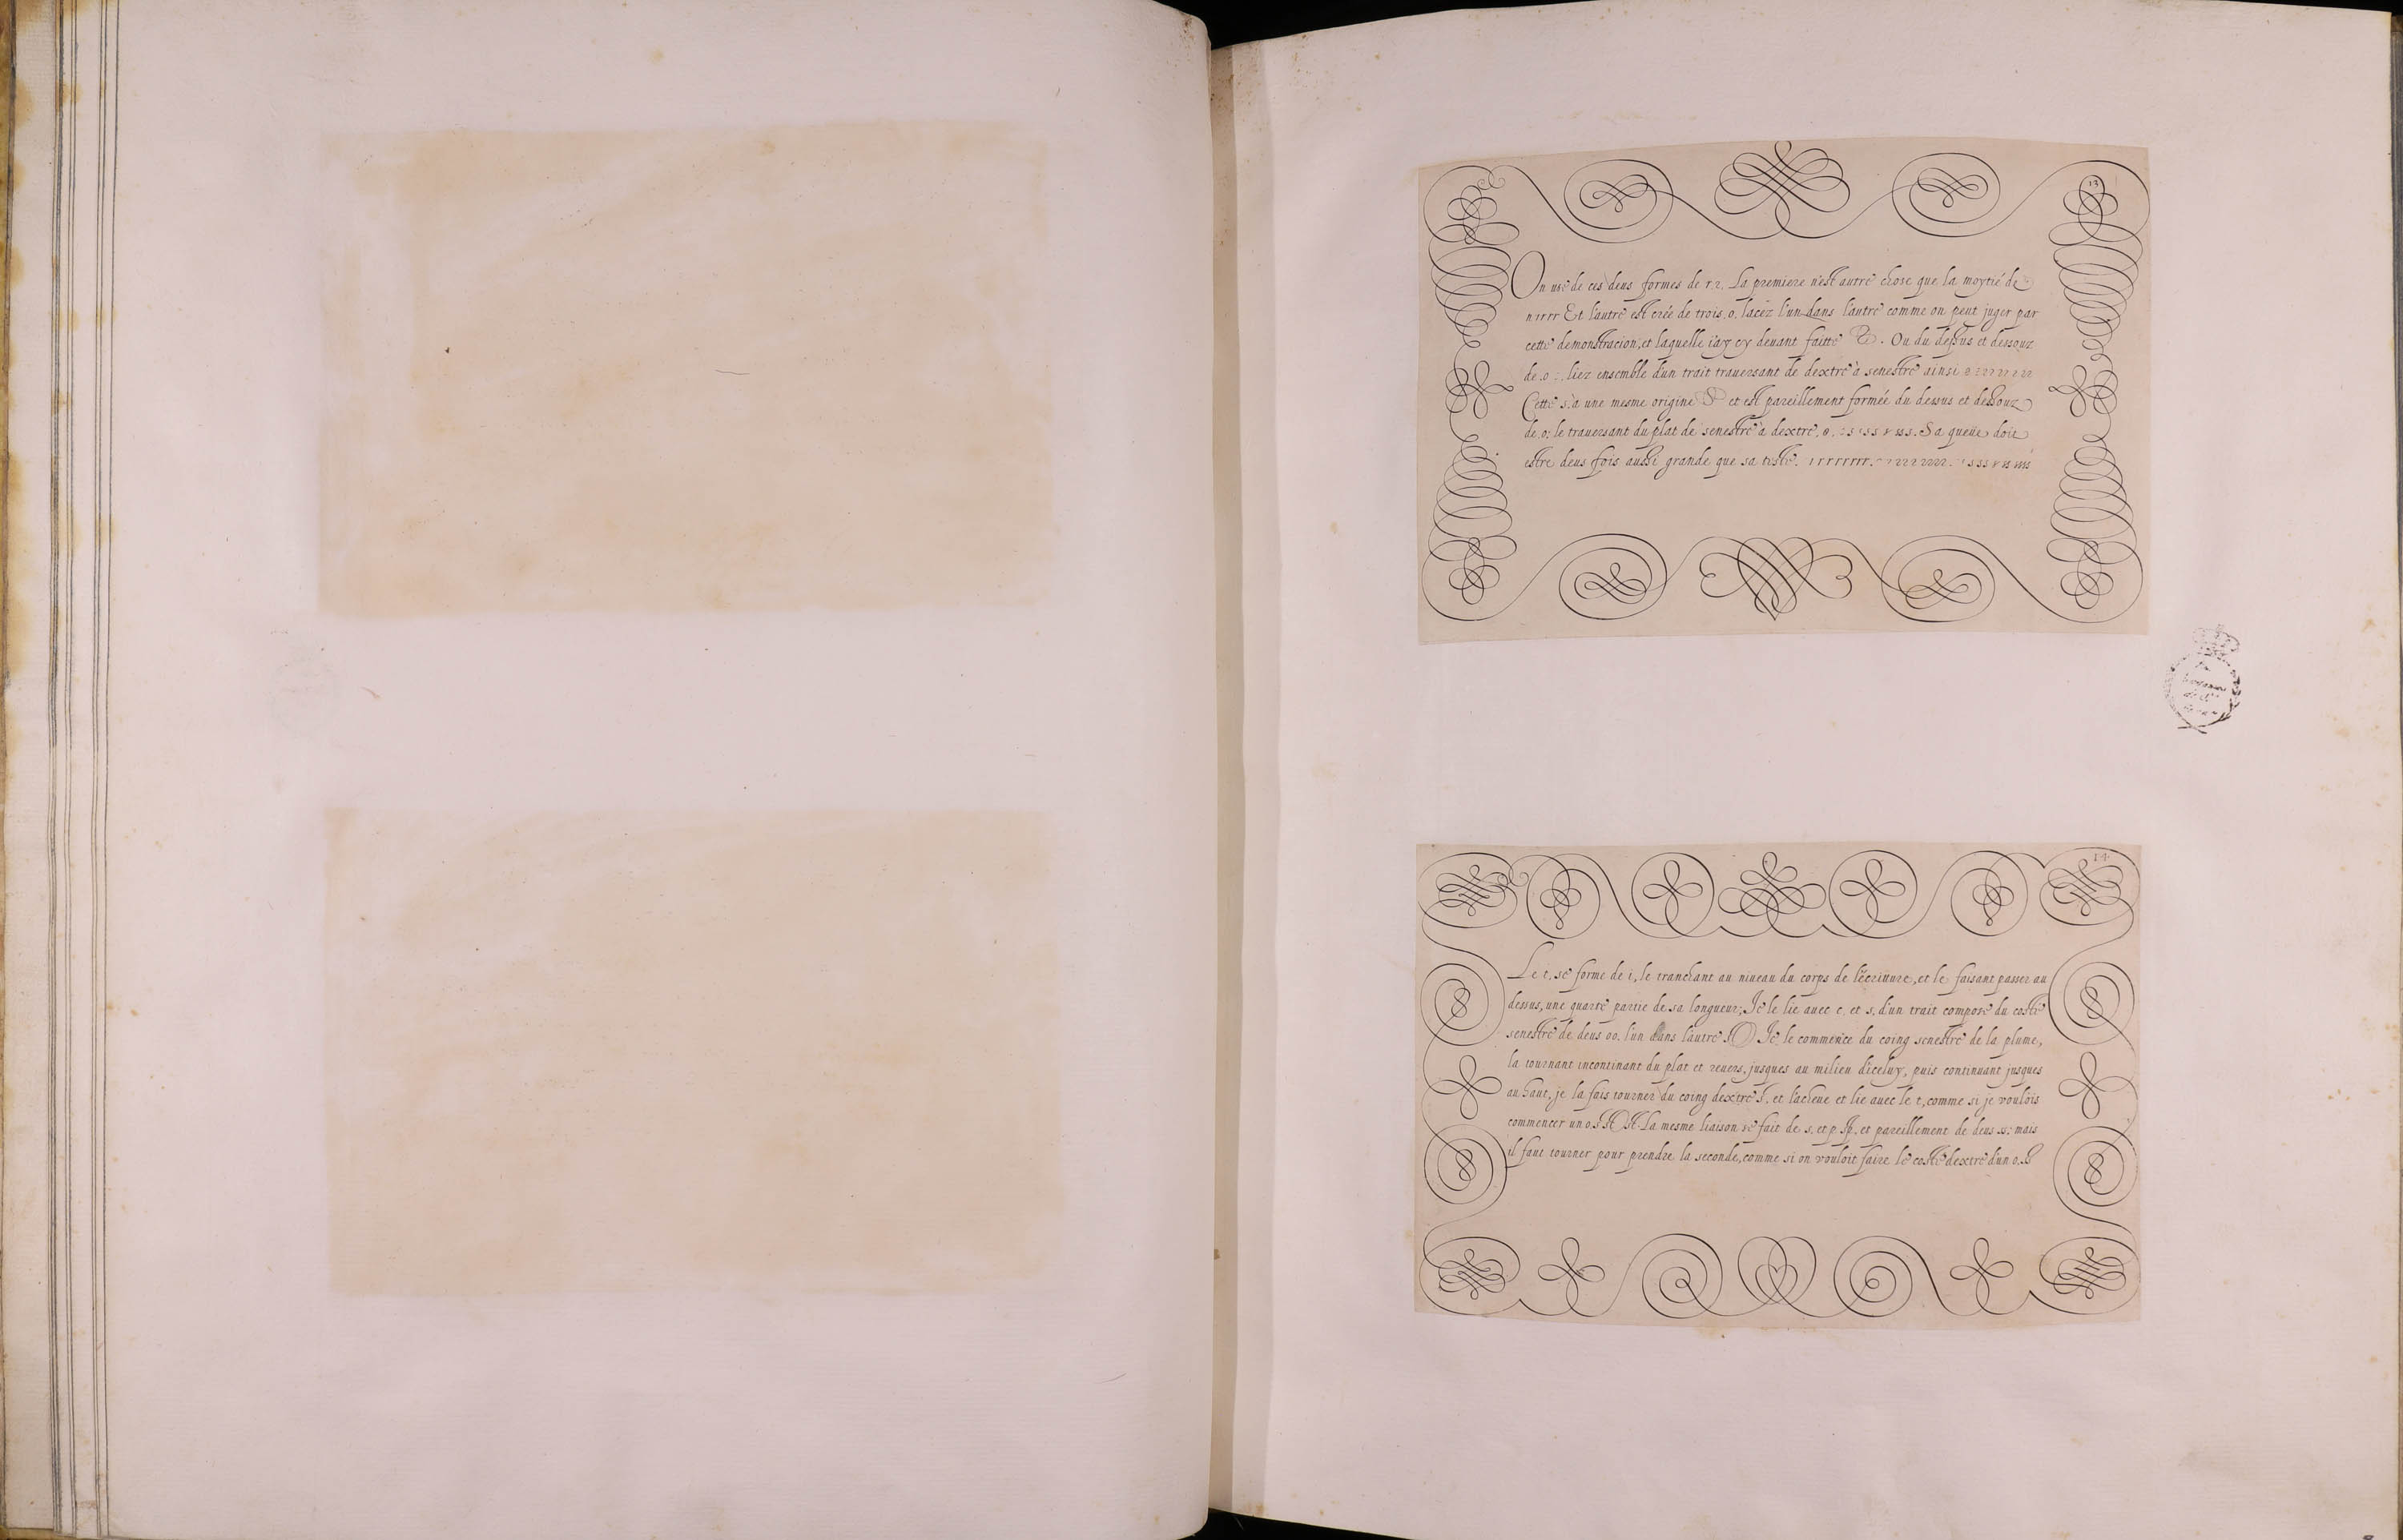 13
On use de ces deus formes de r.2. La premiere n'est autre chose que la moytié de
n ırrr Et l'autre est créé de trois .o. lacez l'un dans l'autre comme on peut juger par
cette demonstracion, et laquelle i'ay cy deuant faitte. Ou du dessus et dessouz
de .o. liez ensemble d'un trait trauersant de dextre à senestre ainsi
Cette s. a une mesme origine et est pareillement formée du dessus et dessouz
de .o. le trauersant du plat de senestre à dextre. Sa queüe doit
estre deus fois aussi grande que sa teste.
14
Le t. se forme de i, le tranchant au niueau du corps de l'écriture, et le faisant passer au
dessus, une quarte partie de sa longueur; Je le lie auec c. et s. d'un trait composé du costé
senestre de deus oo. l'un dans l'autre Je le commence du coing senestre de la plume,
la tournant incontinant du plat et reuers, jusques au milieu d'iceluy, puis continuant jusques
au haut, je la fais tourner du coing dextre, et l'acheue et lie auec le t, comme si je voulois
commencer un o. La mesme liaison se fait de s. et p. et pareillement de deus ss: mais
il faut tourner pour prendre la seconde, comme si on vouloit faire le costé dextre d'un o.